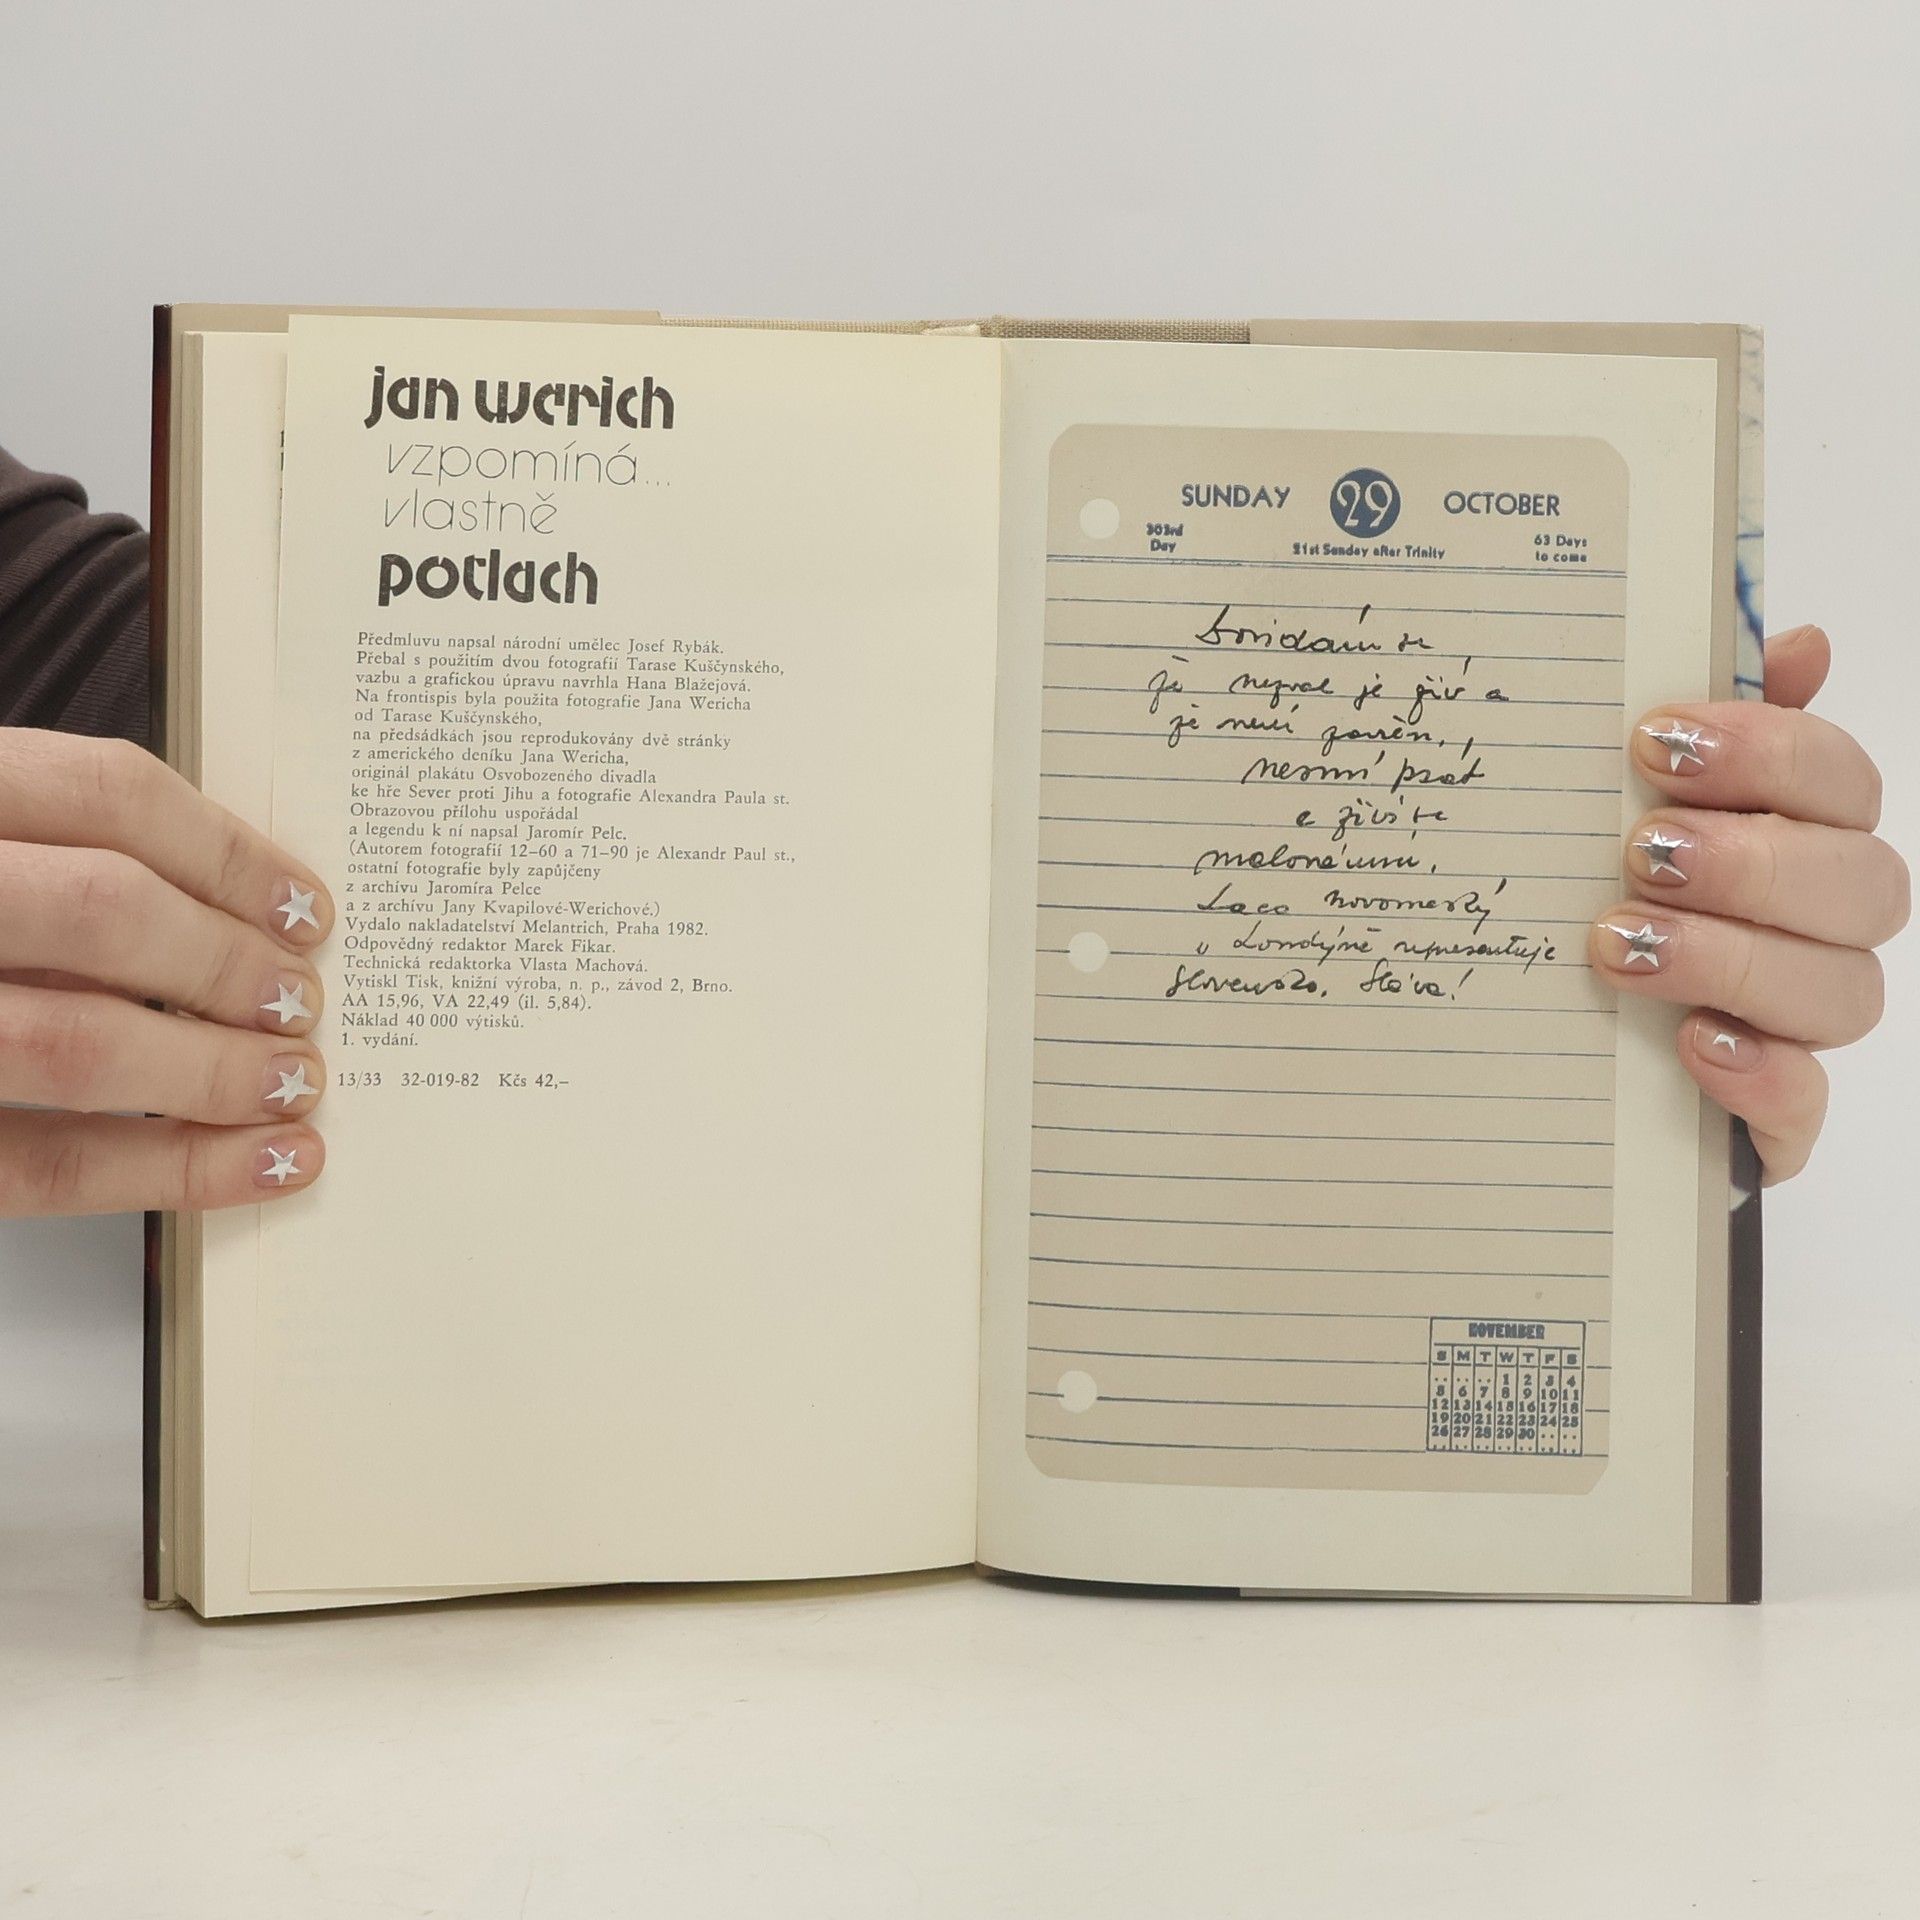 jan werich
vzpomíná...
vlastně
potlach
Předmluvu napsal národní umělec Josef Rybák.
Přebal s použitím dvou fotografií Tarase Kuščynského,
vazbu a grafickou úpravu navrhla Hana Blažejová.
Na frontispis byla použita fotografie Jana Wericha
od Tarase Kuščynského,
na předsádkách jsou reprodukovány dvě stránky
z amerického deníku Jana Wericha,
originál plakátu Osvobozeného divadla
ke hře Sever proti Jihu a fotografie Alexandra Paula st.
Obrazovou přílohu uspořádal
a legendu k ní napsal Jaromír Pelc.
(Autorem fotografií 12–60 a 71–90 je Alexandr Paul st.,
ostatní fotografie byly zapůjčeny
z archívu Jaromíra Pelce
a z archívu Jany Kvapilové-Werichové.)
Vydalo nakladatelství Melantrich, Praha 1982.
Odpovědný redaktor Marek Fikar.
Technická redaktorka Vlasta Machová.
Vytiskl Tisk, knižní výroba, n. p., závod 2, Brno.
AA 15,96, VA 22,49 (il. 5,84).
Náklad 40 000 výtisků.
1. vydání.
13/33 32-019-82 Kčs 42,–
SUNDAY 29 OCTOBER
303rd Day 21st Sunday after Trinity 63 Days to come
Dovídám se,
že nezval je živ a
že není zavřen,
nesmí psát
a živí se
malováním.
Laco Novomeský
v Londýně representuje
Slovensko. Sláva!
NOVEMBER
S M T W T F S
.. .. .. 1 2 3 4
6 7 8 9 10 11
12 13 14 15 16 17 18
19 20 21 22 23 24 25
26 27 28 29 30 .. ..